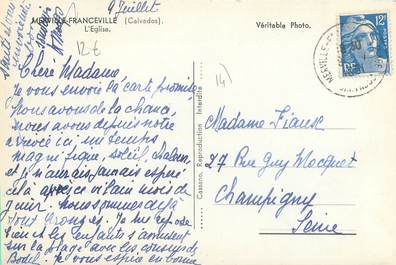 9 Juillet
MERVILLE-FRANCEVILLE (Calvados).
L'Eglise.
Véritable Photo.
12 €
14
12F
RF
MERVILLE-F
Chère Madame,
Je vous envoie la carte promise,
Nous avons de la chance,
nous avons depuis notre
arrivée ici un temps
magnifique, soleil, chaleur,
et je n'aurais jamais espéré
cela après ce vilain mois de
juin. nous sommes déjà
tout bronzés. Je me repose
bien et les enfants s'amusent
sur la plage avec les cousins de
Je vous espère en bonne
santé et vous
Cassano, Reproduction Interdite
Madame
27 Rue Guy Mocquet
Champigny
Seine